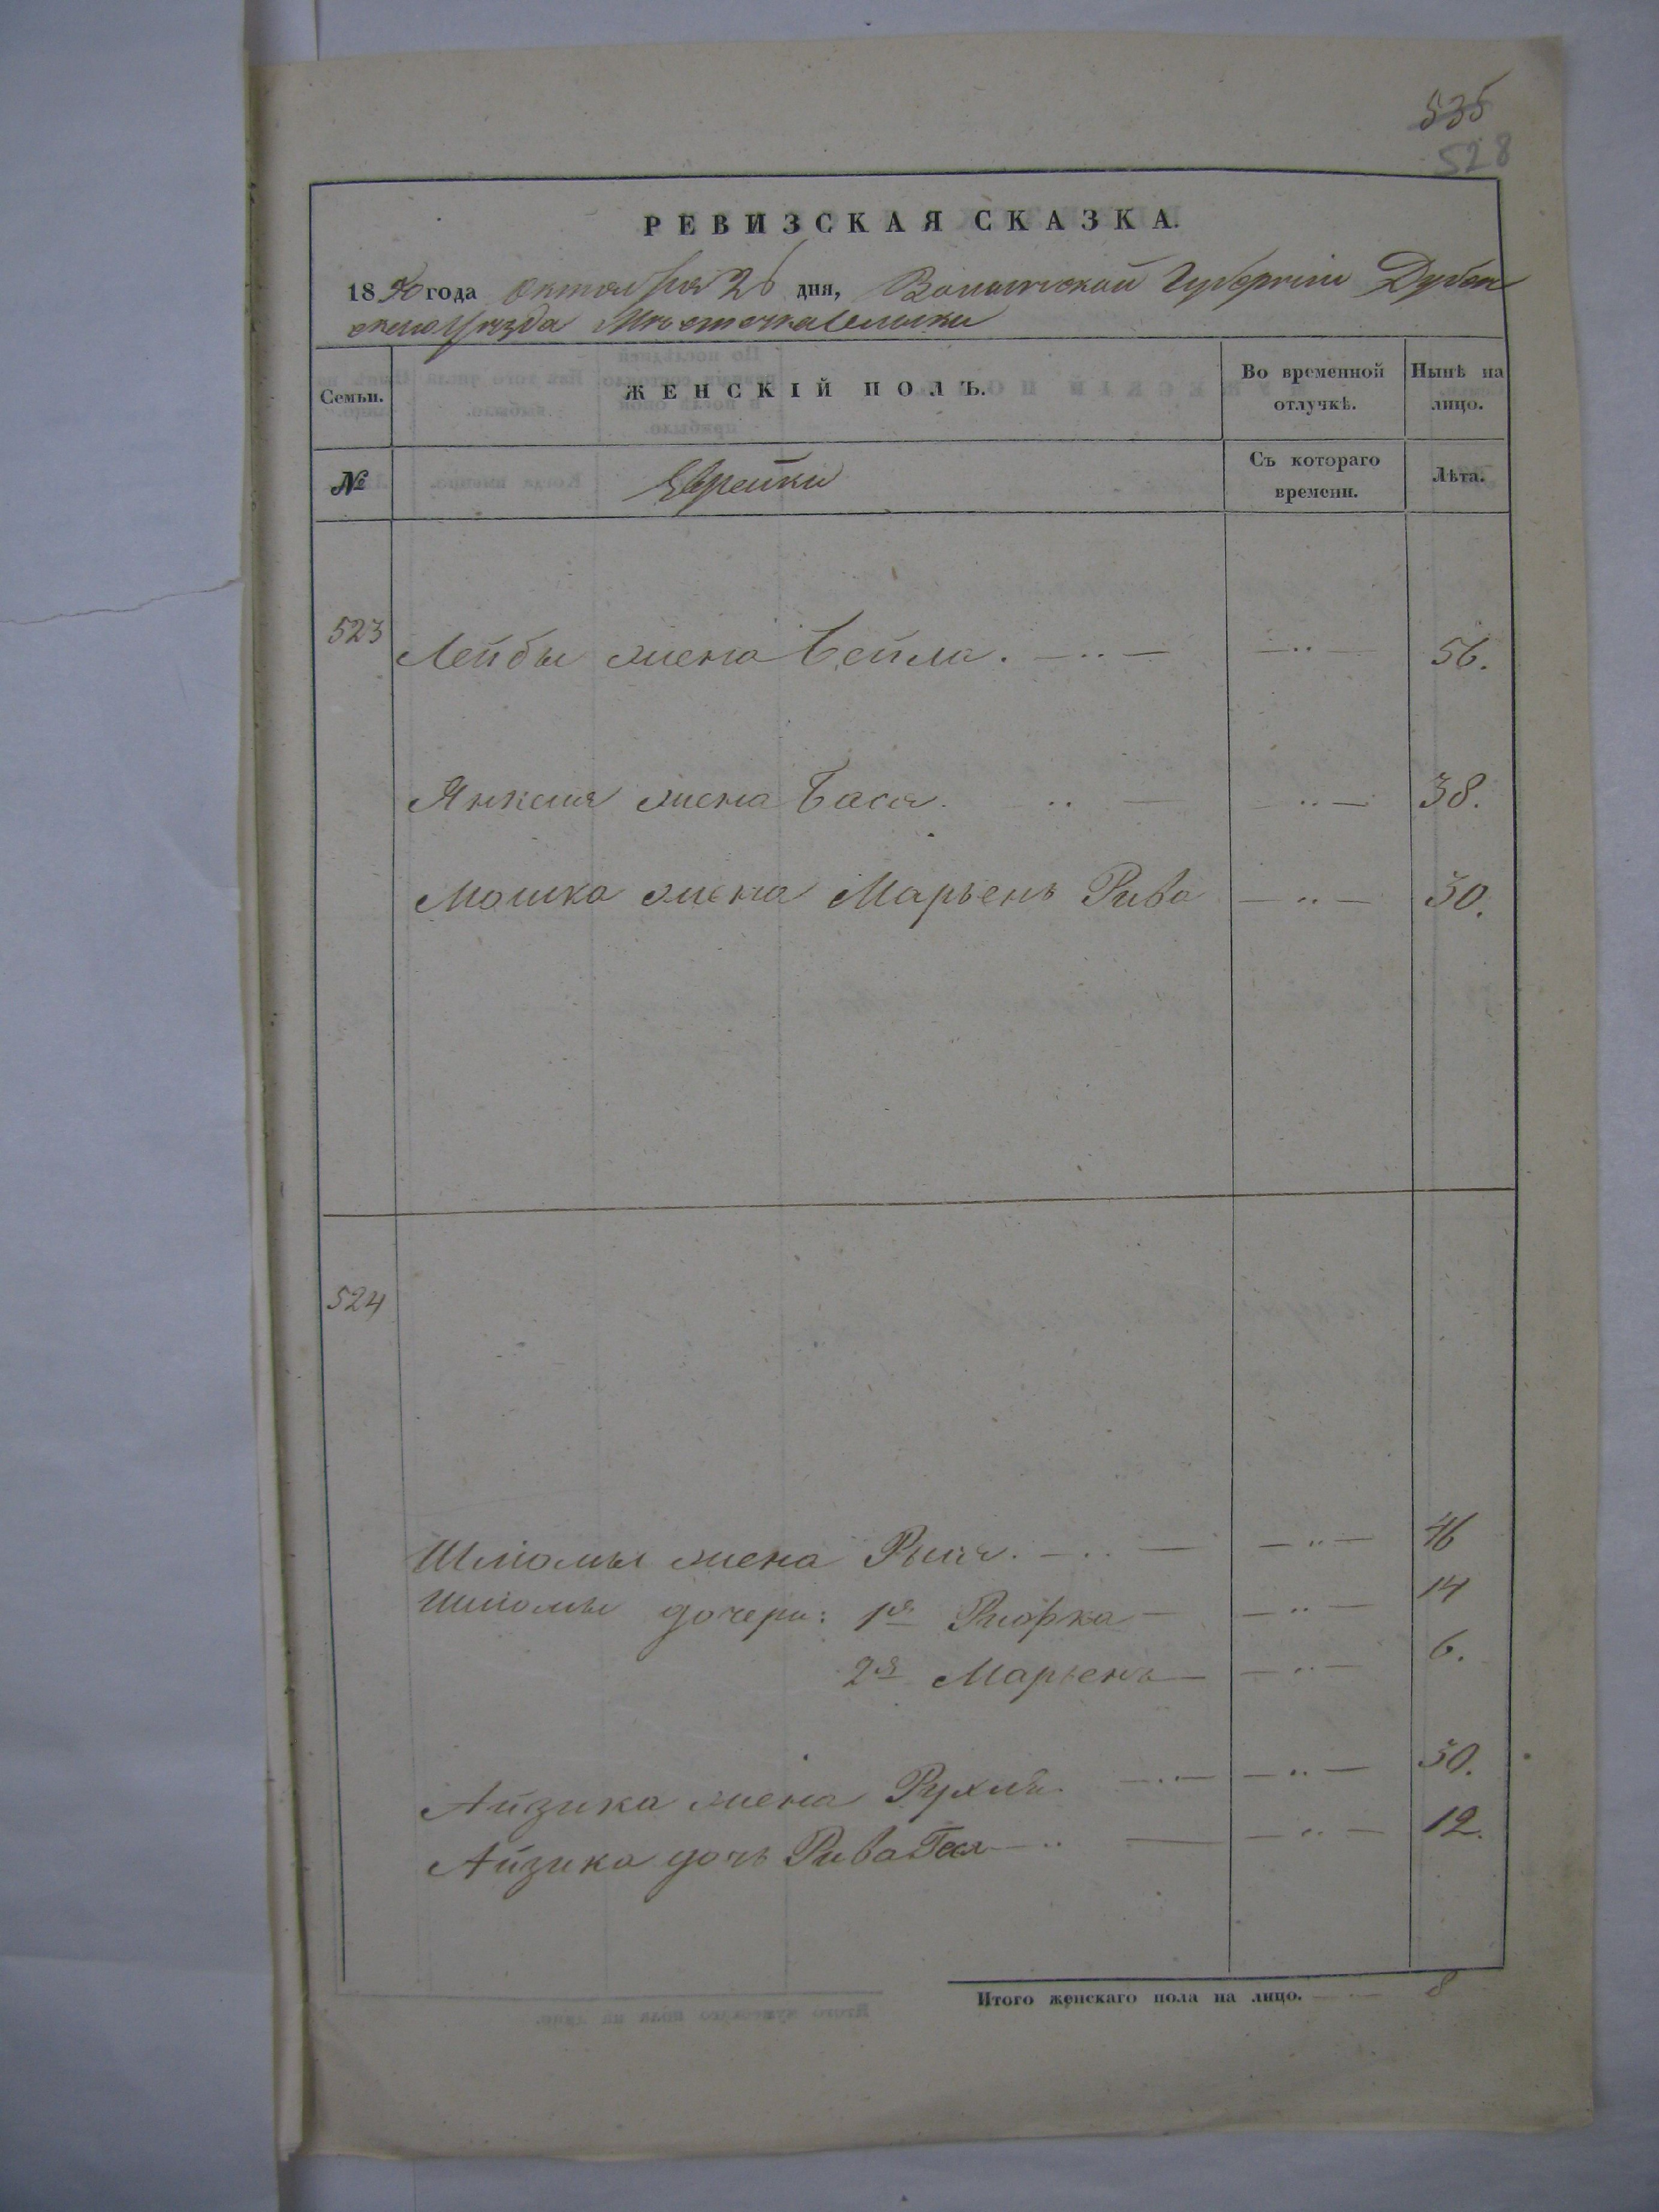 535
528
РЕВИЗСКАЯ СКАЗКА.
1850 года Октября 26 дня, Волынской Губернии Дубен
скаго Уезда Местечка
Семьи. ЖЕНСКІЙ ПОЛЪ. Во временной отлучкѣ. Нынѣ на лицо.
№ Еврейки Съ котораго времени. Лѣта.
523 Лейбы жена Бейла. — .. — — .. — 56.
Янкеля жена Бася. .. — — .. — 38.
Мошка жена Марьемъ Рива — .. — 30.
524
Шліомы жена Рыся. — .. — — .. — 46
Шліомы дочери: 1я Рифка — — .. — 14
2я Марьемъ — — .. — 6.
Айзика жена Рухля. — .. — — .. — 30.
Айзика дочь Рива Гея — .. — — .. — 12.
Итого женскаго пола на лицо. — 8